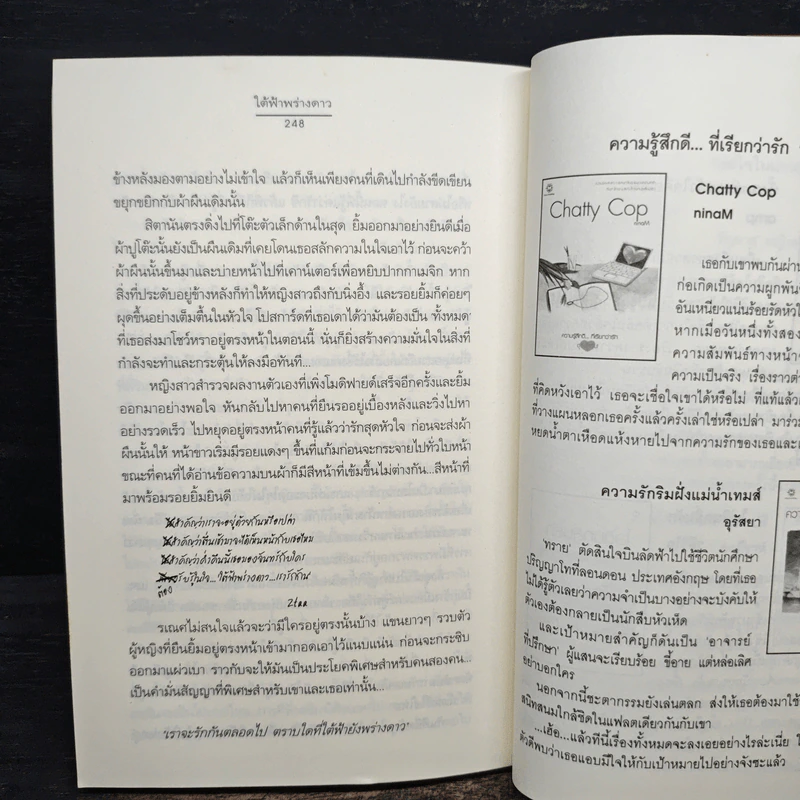 ใต้ฟ้าพร่างดาว
248
ข้างหลังมองตามอย่างไม่เข้าใจ แล้วก็เห็นเพียงคนที่เดินไปกำลังขีดเขียน
ขยุกขยิกกับผ้าผืนเดิมนั้น
สิตานันตรงดิ่งไปที่โต๊ะตัวเล็กด้านในสุด ยิ้มออกมาอย่างยินดีเมื่อ
ผ้าปูโต๊ะนั้นยังเป็นผืนเดิมที่เคยโดนเธอสลักความในใจเอาไว้ ก่อนจะคว้า
ผ้าผืนนั้นขึ้นมาและบ่ายหน้าไปที่เคาน์เตอร์เพื่อหยิบปากกาเมจิก หาก
สิ่งที่ประดับอยู่ข้างหลังก็ทำให้หญิงสาวถึงกับนิ่งอึ้ง และรอยยิ้มก็ค่อยๆ
ผุดขึ้นอย่างเต็มตื้นในหัวใจ โปสการ์ดที่เธอเดาได้ว่ามันต้องเป็น 'ทั้งหมด'
ที่เธอส่งมาโชว์หราอยู่ตรงหน้าในตอนนี้ นั่นก็ยิ่งสร้างความมั่นใจในสิ่งที่
กำลังจะทำและกระตุ้นให้ลงมือทันที...
หญิงสาวสำรวจผลงานตัวเองที่เพิ่งโมดิฟายด์เสร็จอีกครั้งและยิ้ม
ออกมาอย่างพอใจ หันกลับไปหาคนที่ยืนรออยู่เบื้องหลังและวิ่งไปหา
อย่างรวดเร็ว ไปหยุดอยู่ตรงหน้าคนที่รู้แล้วว่ารักสุดหัวใจ ก่อนจะส่งผ้า
ผืนนั้นให้ หน้าขาวเริ่มมีรอยแดงๆ ขึ้นที่แก้มก่อนจะกระจายไปทั่วใบหน้า
ขณะที่คนที่ได้อ่านข้อความบนผ้าก็มีสีหน้าที่เข้มขึ้นไม่ต่างกัน...สีหน้าที่
มาพร้อมรอยยิ้มยินดี
สำคัญว่าเราจะอยู่ด้วยกันหรือเปล่า
สำคัญว่าตื่นเช้ามาจะได้เห็นหน้ากันเธอไหม
สำคัญว่าค่ำคืนนี้เธอมองจันทร์กับใคร
รับรู้ในใจ...ใต้ฟ้าพร่างดาว...เรารักกัน
ต้อง
รเณศไม่สนใจแล้วจะว่ามีใครอยู่ตรงนั้นบ้าง แขนยาวๆ รวบตัว
ผู้หญิงที่ยืนยิ้มอยู่ตรงหน้าเข้ามากอดเอาไว้แนบแน่น ก่อนจะกระซิบ
ออกมาแผ่วเบา ราวกับจะให้มันเป็นประโยคพิเศษสำหรับคนสองคน...
เป็นคำมั่นสัญญาที่พิเศษสำหรับเขาและเธอเท่านั้น...
'เราจะรักกันตลอดไป ตราบใดที่ใต้ฟ้ายังพร่างดาว'
ความรู้สึกดี... ที่เรียกว่ารัก
Chatty Cop
ninaM
Chatty Cop
ninaM
ความรู้สึกดี... ที่เรียกว่ารัก
เธอกับเขาพบกันผ่าน
ก่อเกิดเป็นความผูกพันที่
อันเหนียวแน่นร้อยรัดหัวใ
หากเมื่อวันหนึ่งทั้งสอง
ความสัมพันธ์ทางหน้าจ
ความเป็นจริง เรื่องราวต่า
ที่คิดหวังเอาไว้ เธอจะเชื่อใจเขาได้หรือไม่ ที่แท้แล้วเ
ที่วางแผนหลอกเธอครั้งแล้วครั้งเล่าใช่หรือเปล่า มาร่วม
หยดน้ำตาเหือดแห้งหายไปจากความรักของเธอและเ
ความรักริมฝั่งแม่น้ำเทมส์
อุรัสยา
'ทราย' ตัดสินใจบินลัดฟ้าไปใช้ชีวิตนักศึกษา
ปริญญาโทที่ลอนดอน ประเทศอังกฤษ โดยที่เธอ
ไม่ได้รู้ตัวเลยว่าความจำเป็นบางอย่างจะบังคับให้
ตัวเองต้องกลายเป็นนักสืบหัวเห็ด
และเป้าหมายสำคัญก็ดันเป็น 'อาจารย์
ที่ปรึกษา' ผู้แสนจะเรียบร้อย ขี้อาย แต่หล่อเลิศ
อย่าบอกใคร
นอกจากนี้ชะตากรรมยังเล่นตลก ส่งให้เธอต้องมาใช้
สนิทสนมใกล้ชิดในแฟลตเดียวกันกับเขา
...เฮ้อ...แล้วทีนี้เรื่องทั้งหมดจะลงเอยอย่างไรล่ะเนี่ย ใ
ตัวดีพบว่าเธอแอบมีใจให้กับเป้าหมายไปอย่างจังซะแล้ว